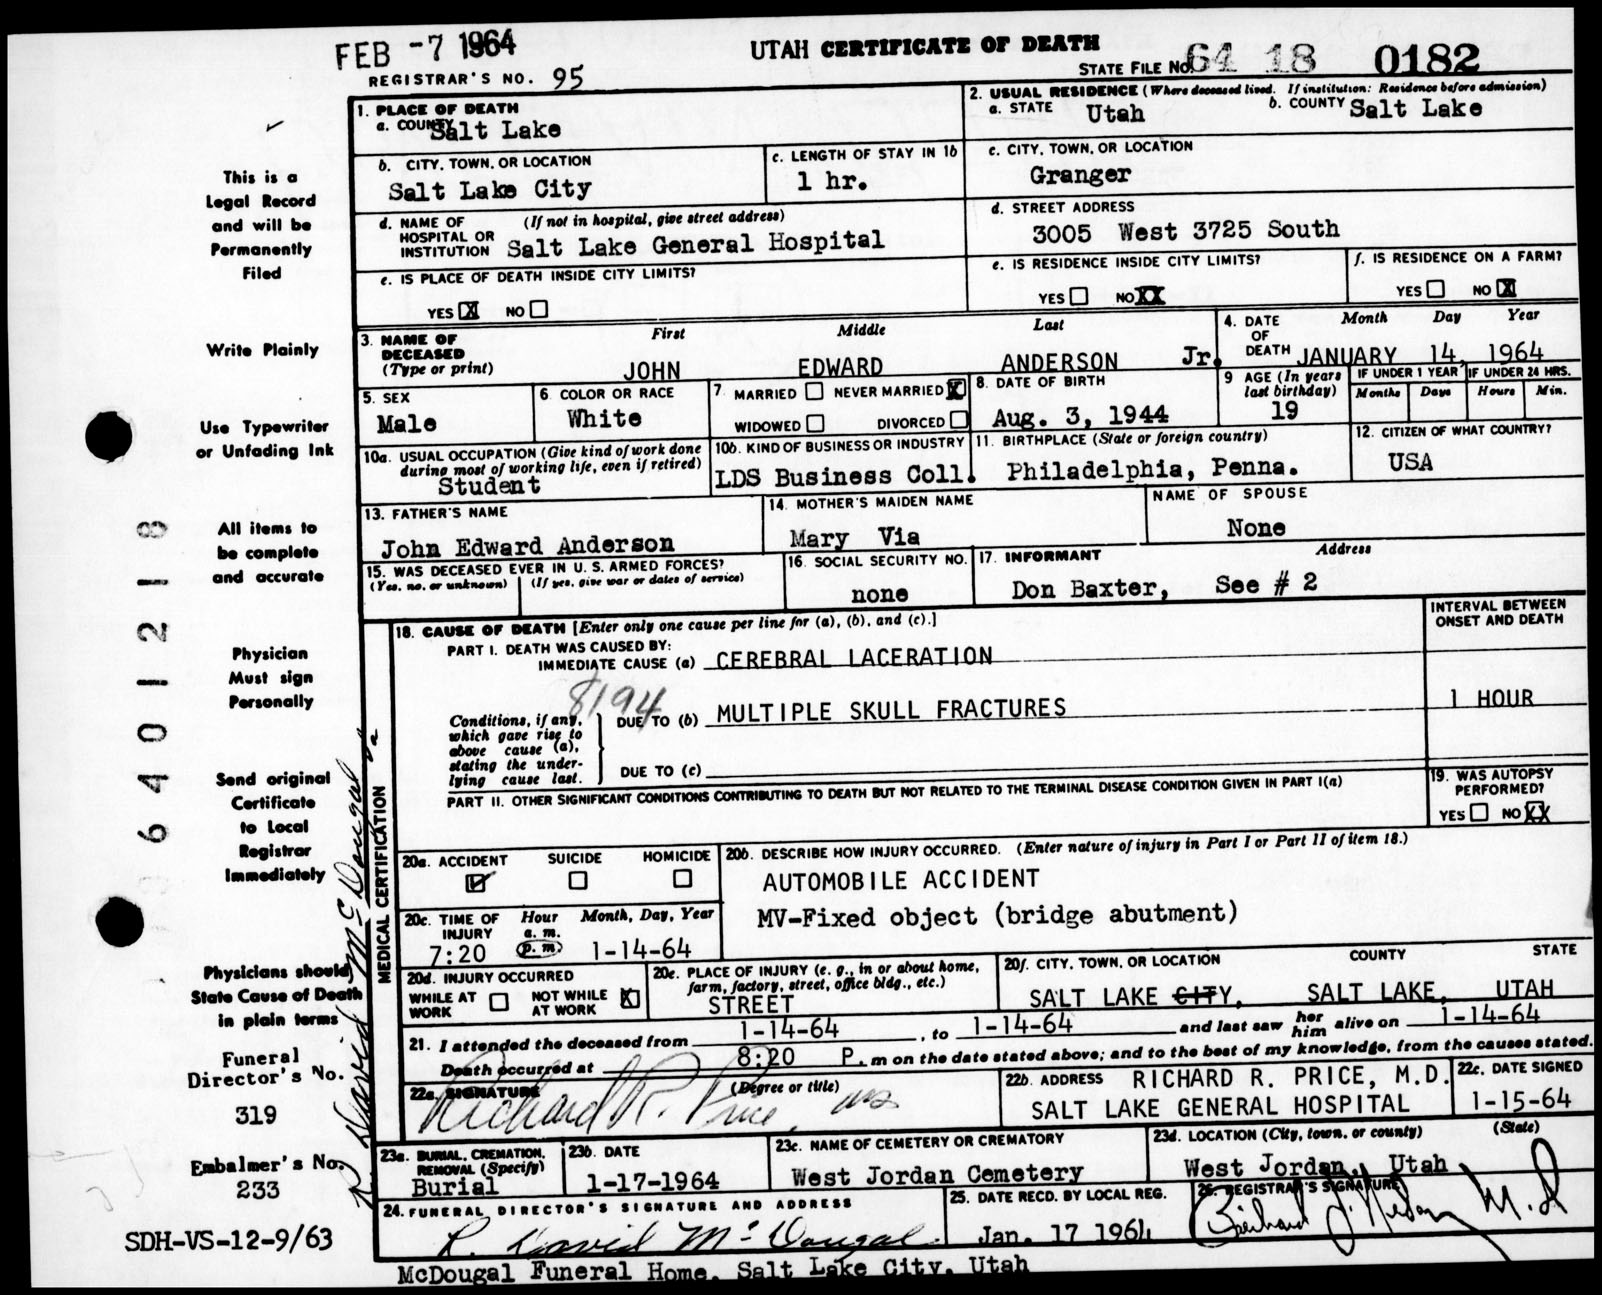 FEB -7 1964
UTAH CERTIFICATE OF DEATH
STATE FILE NO. 64 18 0182
REGISTRAR'S NO. 95
1. PLACE OF DEATH
a. COUNTY Salt Lake
2. USUAL RESIDENCE (Where deceased lived. If institution: Residence before admission)
a. STATE Utah b. COUNTY Salt Lake
b. CITY, TOWN, OR LOCATION
Salt Lake City
c. LENGTH OF STAY IN 1b
1 hr.
c. CITY, TOWN, OR LOCATION
Granger
d. NAME OF HOSPITAL OR INSTITUTION (If not in hospital, give street address)
Salt Lake General Hospital
d. STREET ADDRESS
3005 West 3725 South
e. IS PLACE OF DEATH INSIDE CITY LIMITS?
YES X NO
e. IS RESIDENCE INSIDE CITY LIMITS?
YES NO XX
f. IS RESIDENCE ON A FARM?
YES NO X
3. NAME OF DECEASED (Type or print)
First Middle Last
JOHN EDWARD ANDERSON Jr.
4. DATE OF DEATH Month Day Year
JANUARY 14, 1964
5. SEX
Male
6. COLOR OR RACE
White
7. MARRIED NEVER MARRIED X
WIDOWED DIVORCED
8. DATE OF BIRTH
Aug. 3, 1944
9 AGE (In years last birthday)
19
IF UNDER 1 YEAR IF UNDER 24 HRS.
Months Days Hours Min.
10a. USUAL OCCUPATION (Give kind of work done during most of working life, even if retired)
Student
10b. KIND OF BUSINESS OR INDUSTRY
LDS Business Coll.
11. BIRTHPLACE (State or foreign country)
Philadelphia, Penna.
12. CITIZEN OF WHAT COUNTRY?
USA
13. FATHER'S NAME
John Edward Anderson
14. MOTHER'S MAIDEN NAME
Mary Via
NAME OF SPOUSE
None
15. WAS DECEASED EVER IN U. S. ARMED FORCES?
(Yes, no, or unknown) (If yes, give war or dates of service)
16. SOCIAL SECURITY NO.
none
17. INFORMANT Address
Don Baxter, See # 2
MEDICAL CERTIFICATION
18. CAUSE OF DEATH [Enter only one cause per line for (a), (b), and (c).]
INTERVAL BETWEEN ONSET AND DEATH
PART I. DEATH WAS CAUSED BY:
IMMEDIATE CAUSE (a) CEREBRAL LACERATION
8194
Conditions, if any, which gave rise to above cause (a), stating the underlying cause last.
DUE TO (b) MULTIPLE SKULL FRACTURES
1 HOUR
DUE TO (c)
PART II. OTHER SIGNIFICANT CONDITIONS CONTRIBUTING TO DEATH BUT NOT RELATED TO THE TERMINAL DISEASE CONDITION GIVEN IN PART I(a)
19. WAS AUTOPSY PERFORMED?
YES NO XX
20a. ACCIDENT SUICIDE HOMICIDE
20b. DESCRIBE HOW INJURY OCCURRED. (Enter nature of injury in Part I or Part II of item 18.)
AUTOMOBILE ACCIDENT
MV-Fixed object (bridge abutment)
20c. TIME OF INJURY Hour a. m. p. m. Month, Day, Year
7:20 1-14-64
20d. INJURY OCCURRED
WHILE AT WORK NOT WHILE AT WORK X
20e. PLACE OF INJURY (e. g., in or about home, farm, factory, street, office bldg., etc.)
STREET
20f. CITY, TOWN, OR LOCATION COUNTY STATE
SALT LAKE CITY, SALT LAKE, UTAH
21. I attended the deceased from 1-14-64, to 1-14-64 and last saw her him alive on 1-14-64
Death occurred at 8:20 P. m on the date stated above; and to the best of my knowledge, from the causes stated.
22a. SIGNATURE (Degree or title)
Richard R. Price, MD
22b. ADDRESS RICHARD R. PRICE, M.D.
SALT LAKE GENERAL HOSPITAL
22c. DATE SIGNED
1-15-64
23a. BURIAL, CREMATION, REMOVAL (Specify)
Burial
23b. DATE
1-17-1964
23c. NAME OF CEMETERY OR CREMATORY
West Jordan Cemetery
23d. LOCATION (City, town, or county) (State)
West Jordan, Utah
24. FUNERAL DIRECTOR'S SIGNATURE AND ADDRESS
R. David McDougal
McDougal Funeral Home, Salt Lake City, Utah
25. DATE RECD. BY LOCAL REG.
Jan. 17 1964
26. REGISTRAR'S SIGNATURE
M.D
This is a
Legal Record
and will be
Permanently
Filed
Write Plainly
Use Typewriter
or Unfading Ink
All items to
be complete
and accurate
Physician
Must sign
Personally
Send original
Certificate
to Local
Registrar
Immediately
Physicians should
State Cause of Death
in plain terms
Funeral
Director's No.
319
Embalmer's No.
233
SDH-VS-12-9/63
R. David McDougal
6401218